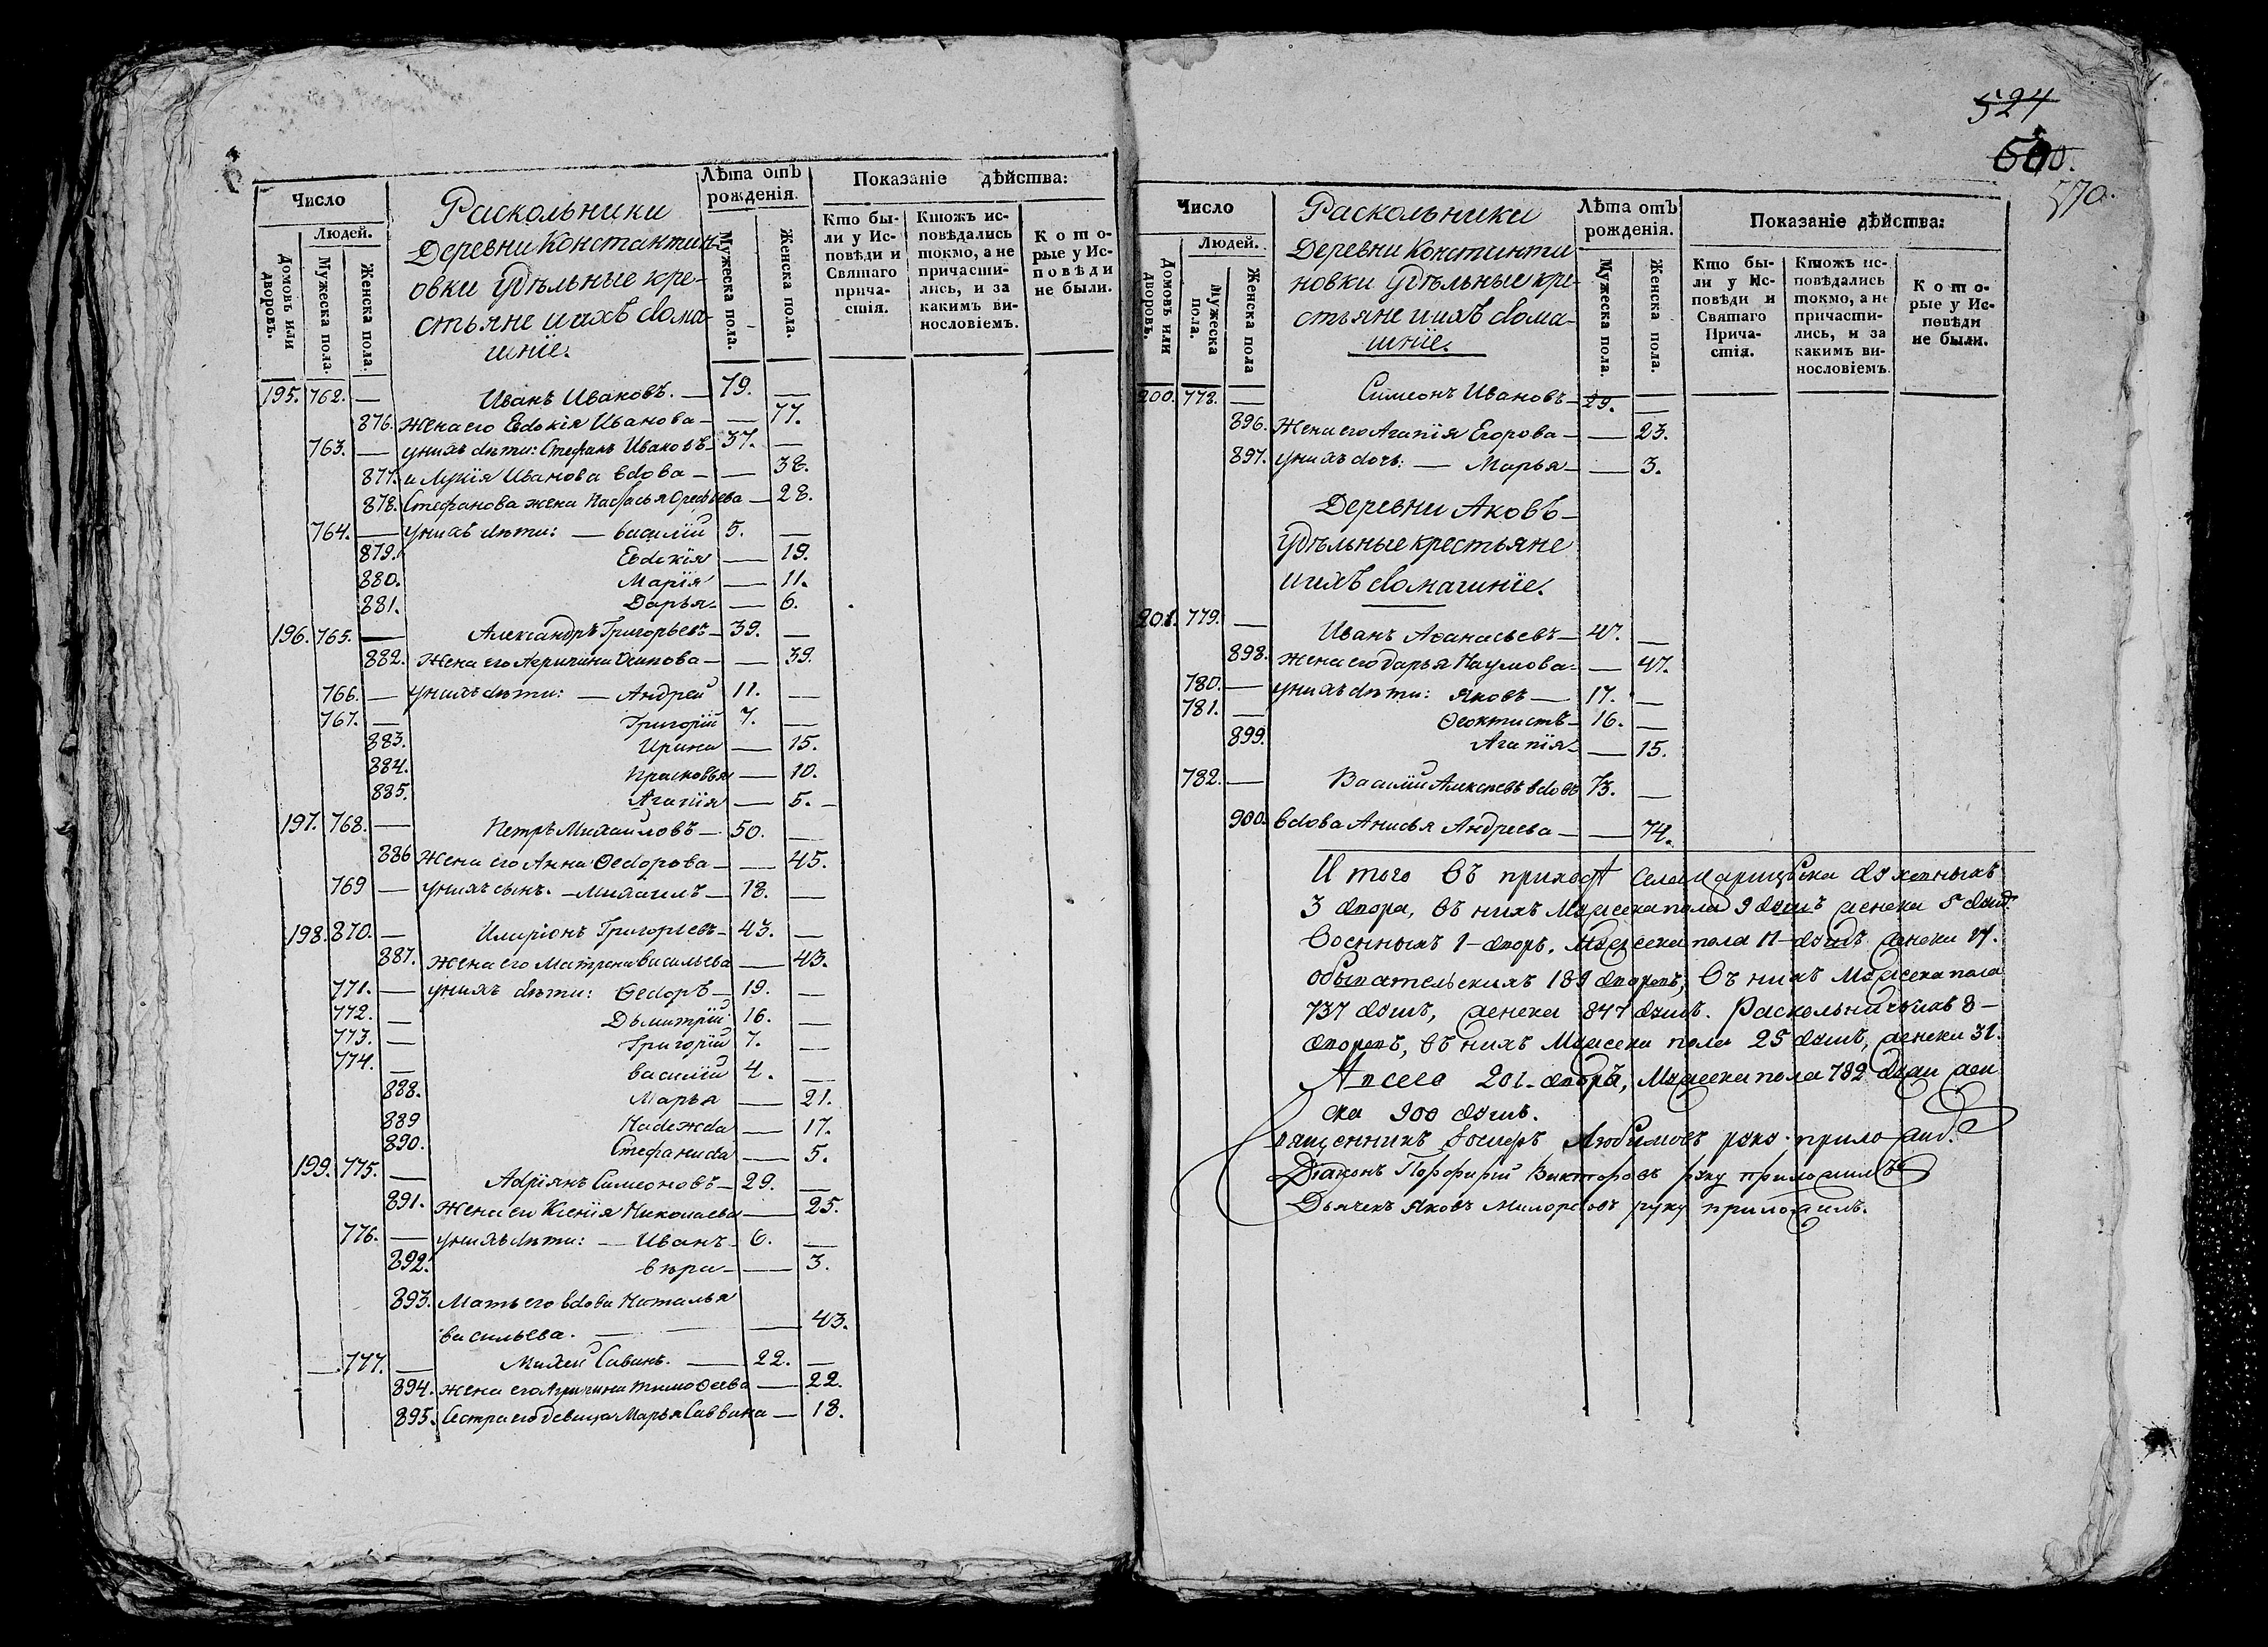 Число
Людей.
Домовъ или дворовъ.
Мужеска пола.
Женска пола.
Раскольники
Деревни Константин-
овки удѣльные кре-
стьяне и ихъ дома-
шніе.
Лѣта отъ рожденія.
Мужеска пола.
Женска пола.
Показаніе дѣйства:
Кто бы-
ли у Ис-
повѣди и
Святаго
прича-
стія.
Ктожъ ис-
повѣдались
токмо, а не
причасти-
лись, и за
какимъ ви-
нословіемъ.
Кото-
рые у Ис-
повѣди
не были.
195. 762. — Иванъ Ивановъ. — 79. —
876. Жена его Евдокія Иванова — — 77.
763. — у нихъ дѣти: Стефанъ Ивановъ — 37. —
877. и Лукія Иванова вдова — — 38.
878. Стефанова жена Настасья Орефьева — 28.
764. — у нихъ дѣти: — Василій 5. —
879. Евдокія — 19.
880. Марія — 11.
881. Дарья — 6.
196. 765. — Александръ Григорьевъ — 39. —
882. Жена его Агрипина Осипова — — 39.
766. — у нихъ дѣти: — Андрей 11. —
767. — Григорій 7. —
883. Ирина — 15.
884. Прасковья — 10.
885. Агапія — 5. —
197. 768. — Петръ Михаиловъ — 50. —
886 Жена его Анна Ѳедорова — — 45.
769 — у нихъ сынъ. — Михаилъ — 18. —
198. 870. — Иларіонъ Григорьевъ — 43. —
887. Жена его Матрена Васильева — 43.
771. — у нихъ дѣти: Ѳедоръ — 19. —
772. — Дьмитрій 16. —
773. — Григорій 7. —
774. — Василій 4. —
888. Марья — 21.
889 Надежда — 17.
890. Стефанида — 5.
199. 775. — Адріянъ Симеоновъ — 29. —
891. Жена его Ксенія Николаева — 25.
776. — у нихъ дѣти: — Иванъ 6. —
892. Вѣра — — 3.
893. Мать его вдова Наталья
Васильева. — — 43.
— 777. — Михей Савинъ. — 22. —
894. Жена его Агрипина Тимоѳеева — 22.
895. Сестра его девица Марья Саввина — 18.
524
570.
Число
Людей.
Домовъ или дворовъ.
Мужеска пола.
Женска пола
Раскольники
Деревни Констинти
новки удѣльные кре-
стьяне и ихъ дома-
шніе.
Лѣта отъ рожденія.
Мужеска пола.
Женска пола.
Показаніе дѣйства:
Кто бы-
ли у Ис-
повѣди и
Святаго
Прича-
стія.
Ктожъ ис-
повѣдались
токмо, а не
причасти-
лись, и за
какимъ ви-
нословіемъ.
Кото-
рые у Ис-
повѣди
не были.
200. 778. — Симеонъ Ивановъ — 29. —
896. Жена его Агапія Егорова — — 23.
897. у нихъ дочь: — Марья — — 3.
Деревни Аковъ —
удѣльные крестьяне
и ихъ домашніе.
201. 779. — Иванъ Аѳанасьевъ — 47. —
898. Жена его Дарья Наумова — — 47.
780. — у нихъ дѣти: Яковъ — 17. —
781. — Ѳеоктистъ — 16. —
899. Агапія — — 15.
782. — Василій Алексѣевъ вдовъ 73. —
900. вдова Анисья Андреева — — 74.
Итого въ приходѣ села духовныхъ
3 двора, въ нихъ Мужеска пола 9 душъ женска 5 душъ.
Военныхъ 1 – дворъ, Мужеска пола 11 – душъ женска 17.
обывательскихъ 189 дворовъ, въ нихъ Мужеска пола
737 душъ, женска 847 душъ. Раскольничьихъ 8 –
дворовъ, въ нихъ Мужеска пола 25 душъ, женска 31.
А всего 201 – дворъ, Мужеска пола 782 души жен
ска 900 душъ.
Священникъ Іосифъ Любимовъ руку приложил.
Діаконъ Порфирій Викторовъ руку приложилъ
Дьячекъ Яковъ руку приложилъ.